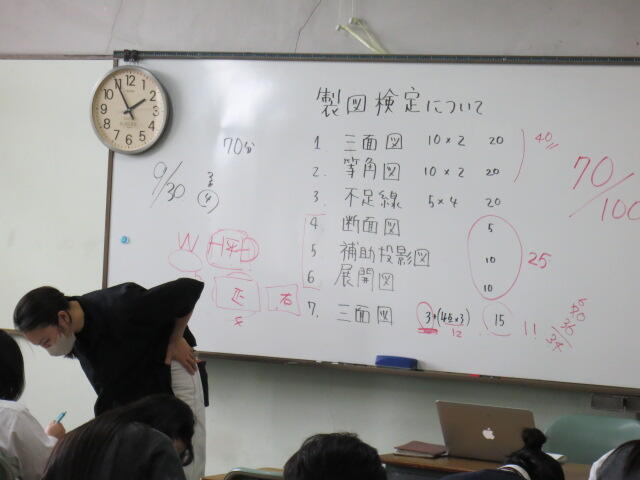 製図検定について
70分
9/30
1. 三面図 10×2 20
2. 等角図 10×2 20
40
3. 不足線 5×4 20
4 断面図 5
5 補助投影図 10
6 展開図 10
25
7. 三面図 3+(4点×3) 15
12
70/100
W
正
右
12 1 2 3 4 5 6 7 8 9 10 11